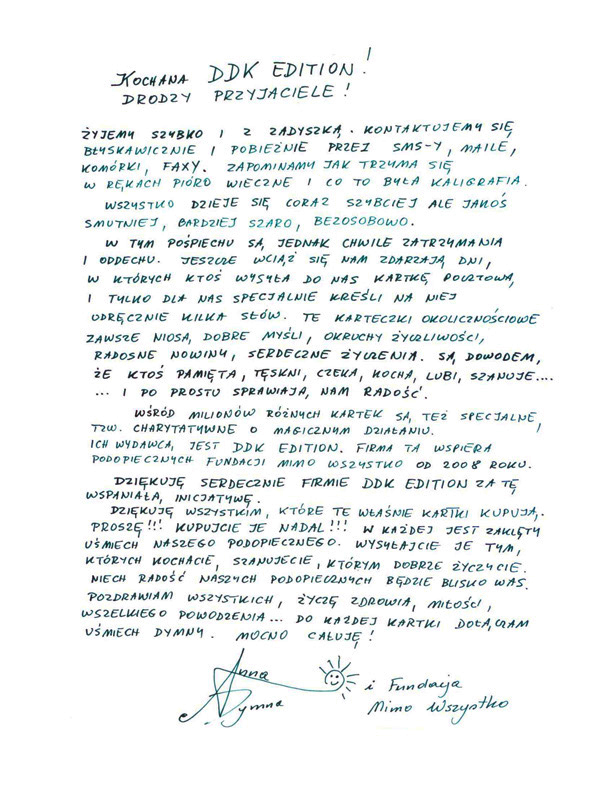 KOCHANA DDK EDITION!
DRODZY PRZYJACIELE!
ŻYJEMY SZYBKO I Z ZADYSZKĄ. KONTAKTUJEMY SIĘ
BŁYSKAWICZNIE I POBIEŻNIE PRZEZ SMS-Y, MAILE,
KOMÓRKI, FAXY. ZAPOMINAMY JAK TRZYMA SIĘ
W RĘKACH PIÓRO WIECZNE I CO TO BYŁA KALIGRAFIA.
WSZYSTKO DZIEJE SIĘ CORAZ SZYBCIEJ ALE JAKOŚ
SMUTNIEJ, BARDZIEJ SZARO, BEZOSOBOWO.
W TYM POŚPIECHU SĄ JEDNAK CHWILE ZATRZYMANIA
I ODDECHU. JESZCZE WCIĄŻ SIĘ NAM ZDARZAJĄ DNI,
W KTÓRYCH KTOŚ WYSYŁA DO NAS KARTKĘ POCZTOWĄ
I TYLKO DLA NAS SPECJALNIE KREŚLI NA NIEJ
ODRĘCZNIE KILKA SŁÓW. TE KARTECZKI OKOLICZNOŚCIOWE
ZAWSZE NIOSĄ DOBRE MYŚLI, OKRUCHY ŻYCZLIWOŚCI,
RADOSNE NOWINY, SERDECZNE ŻYCZENIA. SĄ DOWODEM,
ŻE KTOŚ PAMIĘTA, TĘSKNI, CZEKA, KOCHA, LUBI, SZANUJE....
... I PO PROSTU SPRAWIAJĄ NAM RADOŚĆ.
WŚRÓD MILIONÓW RÓŻNYCH KARTEK SĄ TEŻ SPECJALNE,
TZW. CHARYTATYWNE O MAGICZNYM DZIAŁANIU.
ICH WYDAWCĄ JEST DDK EDITION. FIRMA TA WSPIERA
PODOPIECZNYCH FUNDACJI MIMO WSZYSTKO OD 2008 ROKU.
DZIĘKUJĘ SERDECZNIE FIRMIE DDK EDITION ZA TĘ
WSPANIAŁĄ INICJATYWĘ.
DZIĘKUJĘ WSZYSTKIM, KTÓRE TE WŁAŚNIE KARTKI KUPUJĄ.
PROSZĘ!!! KUPUJCIE JE NADAL!!! W KAŻDEJ JEST ZAKLĘTY
UŚMIECH NASZEGO PODOPIECZNEGO. WYSYŁAJCIE JE TYM,
KTÓRYCH KOCHACIE, SZANUJECIE, KTÓRYM DOBRZE ŻYCZYCIE.
NIECH RADOŚĆ NASZYCH PODOPIECZNYCH BĘDZIE BLISKO WAS.
POZDRAWIAM WSZYSTKICH, ŻYCZĘ ZDROWIA, MIŁOŚCI,
WSZELKIEGO POWODZENIA... DO KAŻDEJ KARTKI DOŁĄCZAM
UŚMIECH DYMNY. MOCNO CAŁUJĘ!
Anna
Dymna
i Fundacja
Mimo Wszystko